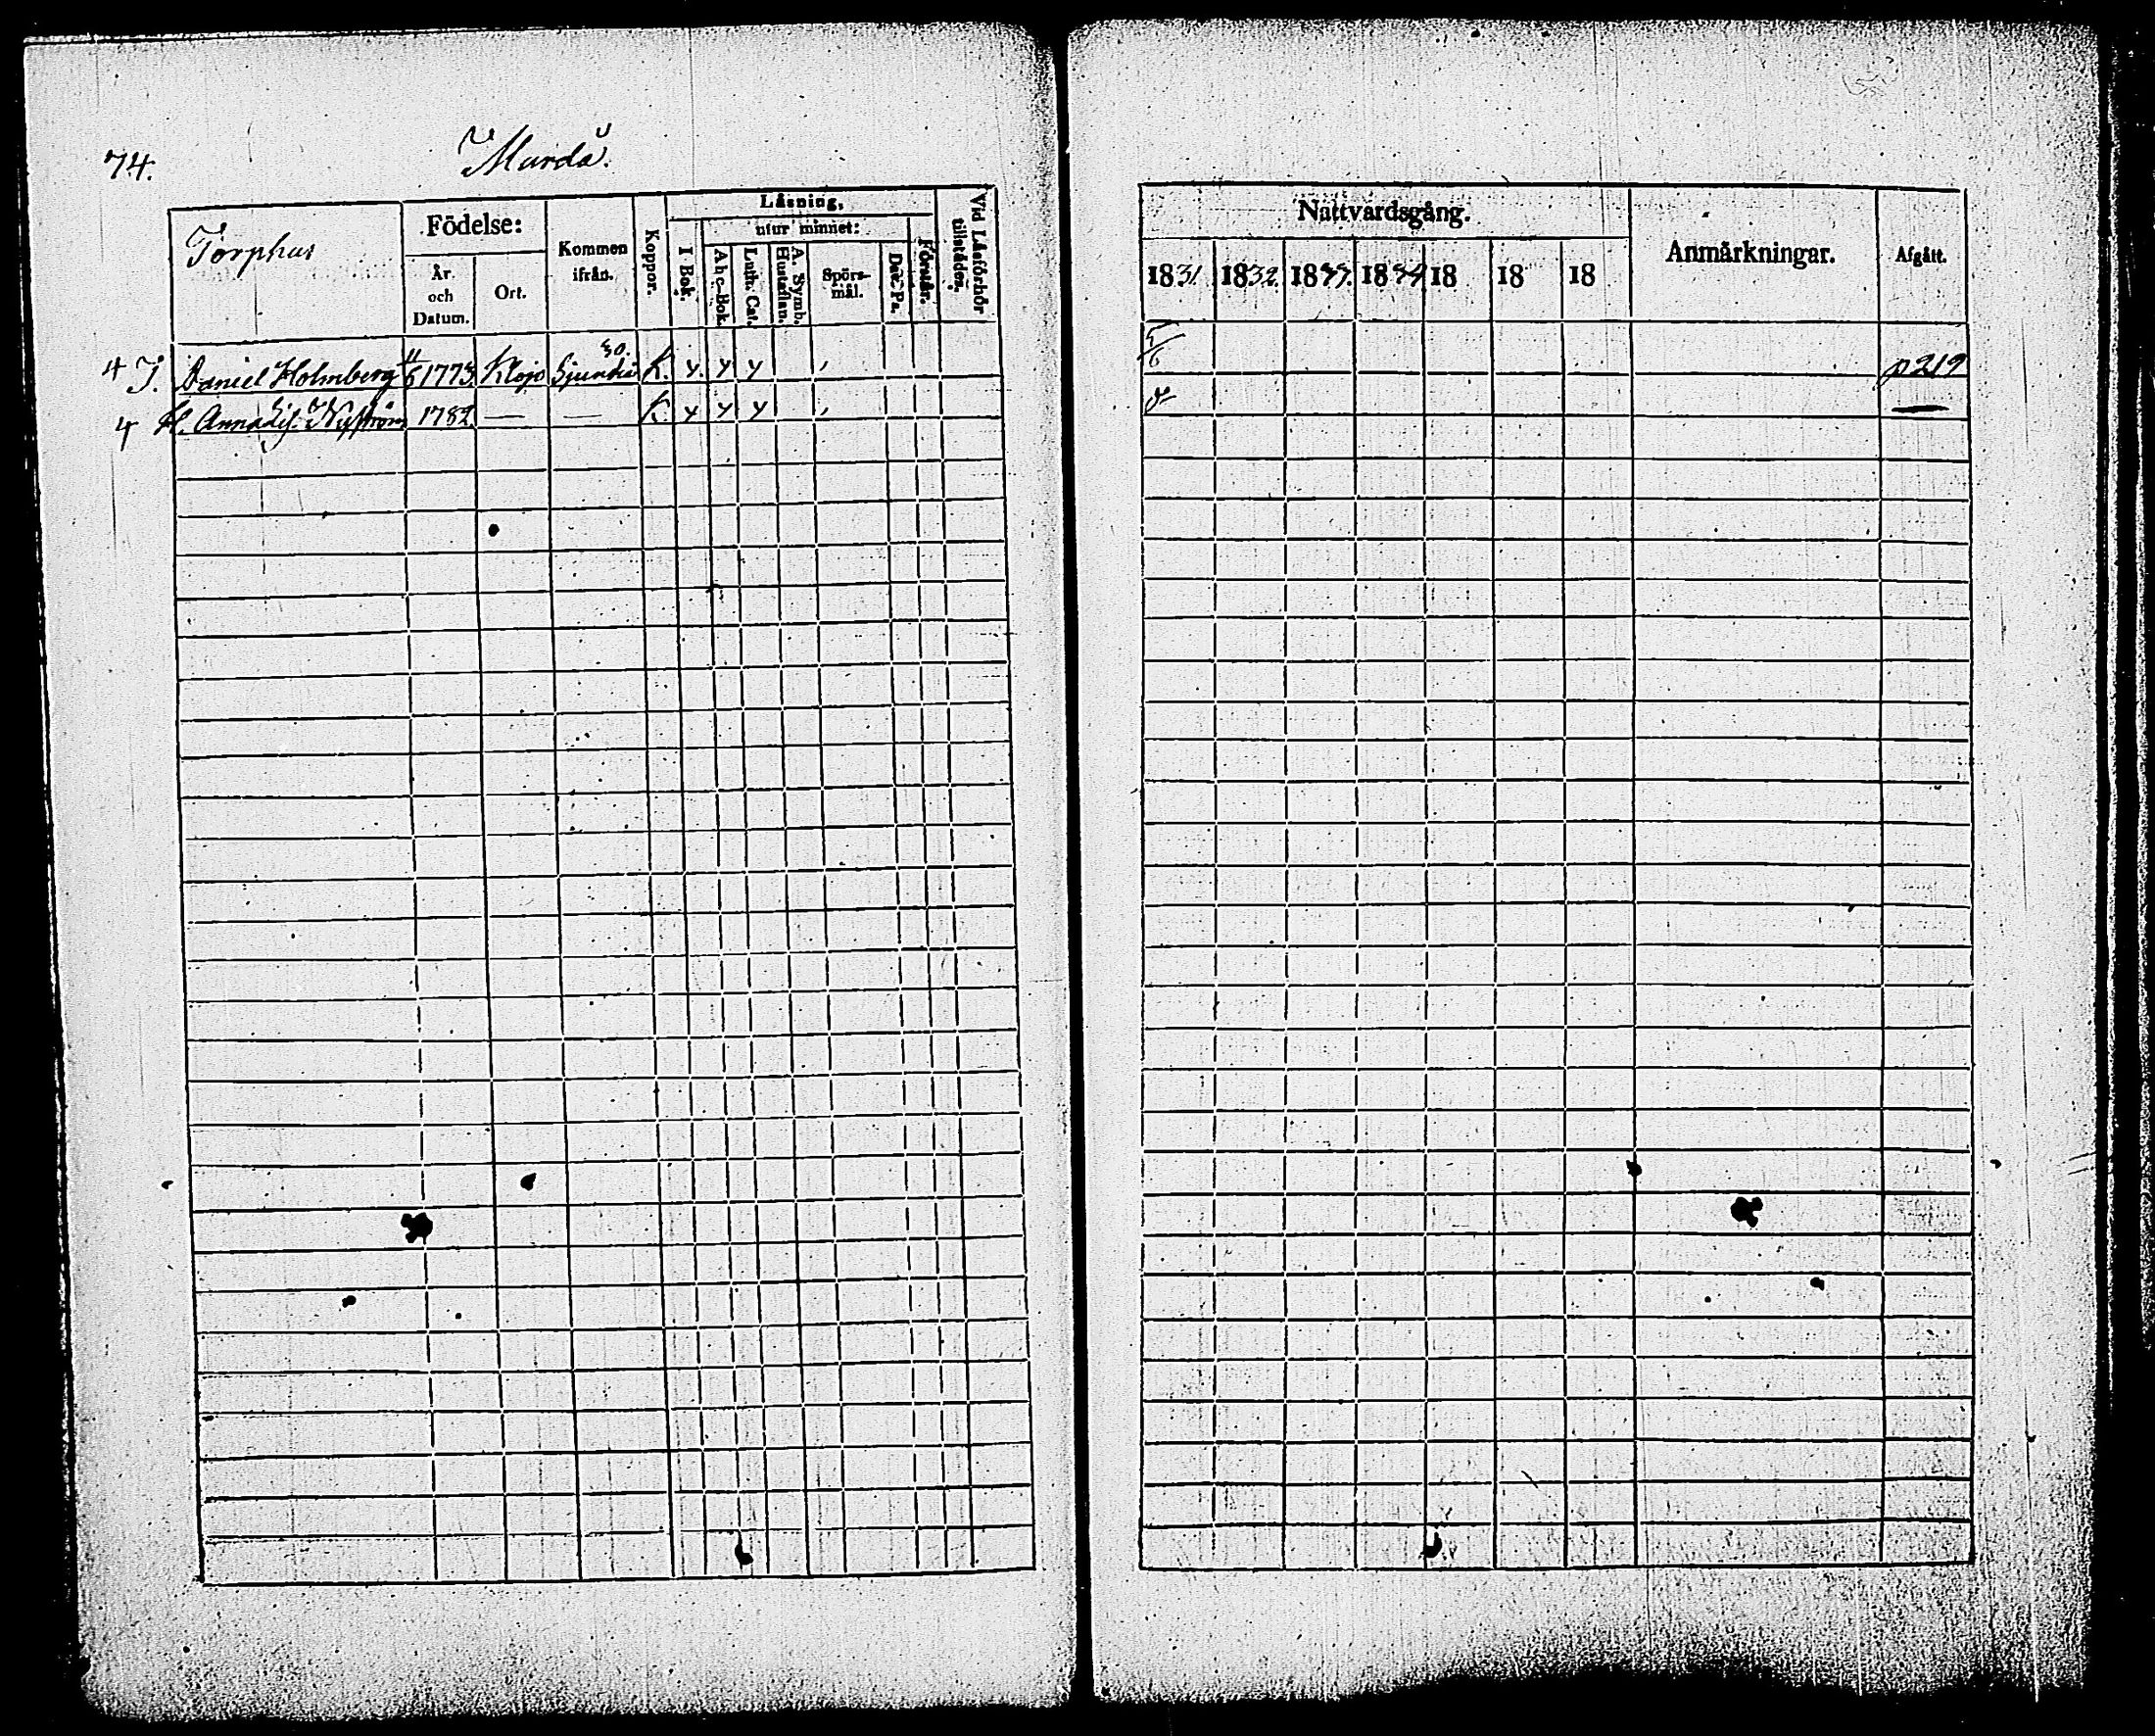 74.
Murda.
Torphus
Födelse:
År och Datum.
Ort.
Kommen ifrån.
Koppor.
Läsning.
I Bok.
utur minnet:
Abc-Bok.
Luth. Cat.
A. Symb. Hustaflan.
Spörs-mål.
Dav. Ps.
Förstår.
Vid Läsförhör tillstädes.
4 T. Daniel Holmberg 11/6 1773. Klojo Sjundeå 30. K. y. y y
4 H. Anna Lis. Nyström 1782. — — K. y y y
Nattvardsgång.
1831. 1832. 1833. 1834 18 18 18
Anmärkningar.
Afgått.
5/6
p 219
—